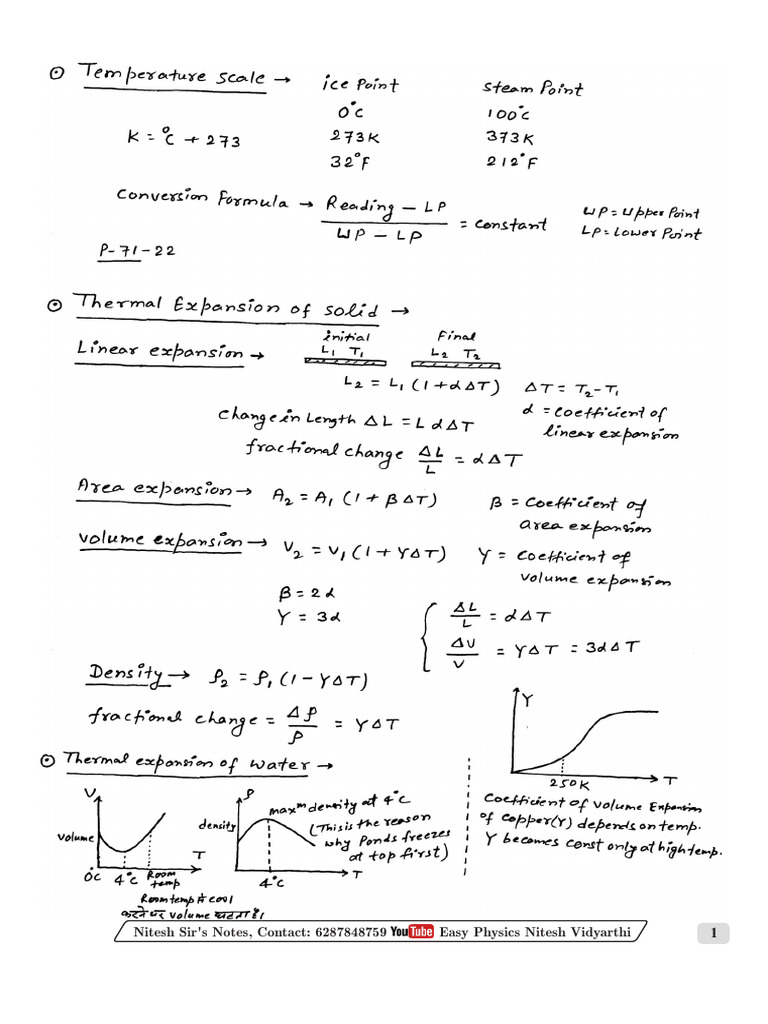 ⊙ Temperature scale → ice Point steam Point
0°C 100°C
K = °C + 273 273K 373K
32°F 212°F
Conversion Formula → Reading – LP / UP – LP = constant UP = Upper Point
LP = Lower Point
P-71-22
⊙ Thermal Expansion of solid →
initial Final
Linear expansion → L₁ T₁ L₂ T₂
L₂ = L₁ (1 + α ΔT) ΔT = T₂ – T₁
change in Length ΔL = L α ΔT α = coefficient of
linear expansion
fractional change ΔL/L = α ΔT
Area expansion → A₂ = A₁ (1 + β ΔT) β = coefficient of
area expansion
volume expansion → V₂ = V₁ (1 + γΔT) γ = coefficient of
volume expansion
β = 2α
γ = 3α
ΔL/L = α ΔT
ΔV/V = γΔT = 3αΔT
Density → ρ₂ = ρ₁ (1 – γΔT)
fractional change = Δρ/ρ = γΔT
γ
250K T
⊙ Thermal expansion of water →
V
volume
0°C 4°C Room temp T
Room temp से cool
करने पर volume घटता है।
ρ
density
maxᵐ density at 4°C
(This is the reason
why Ponds freezes
at top first)
4°C T
Coefficient of volume Expansion
of copper(γ) depends on temp.
γ becomes const only at high temp.
Nitesh Sir's Notes, Contact: 6287848759 YouTube Easy Physics Nitesh Vidyarthi 1